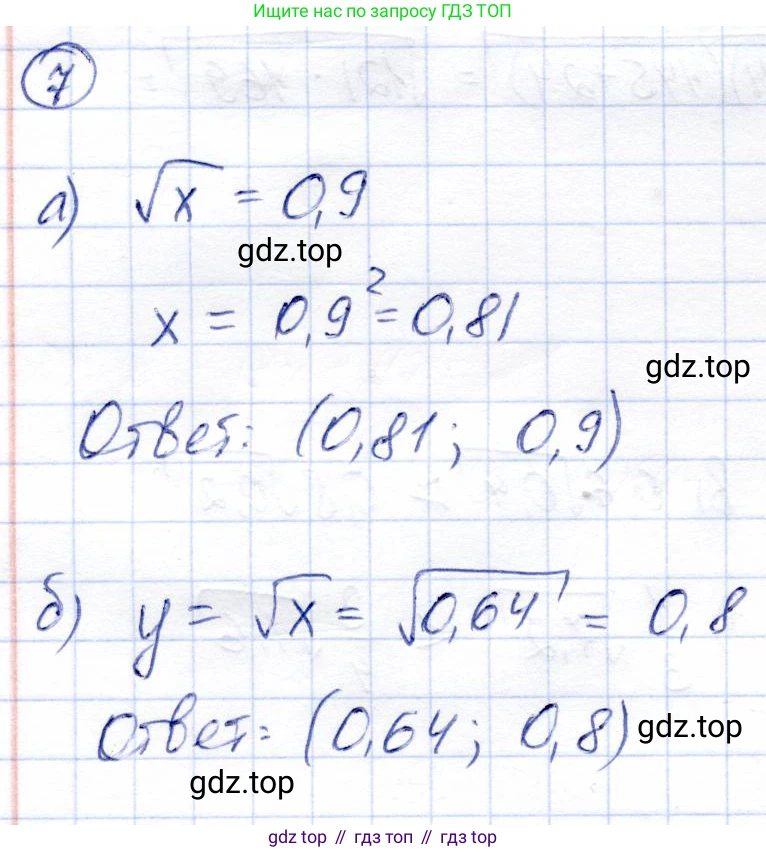 Ищите нас по запросу ГДЗ ТОП
7
а) √x = 0,9
gdz.top
x = 0,9² = 0,81
gdz.top
Ответ: (0,81; 0,9)
gdz.top
б) y = √x = √0,64 = 0,8
Ответ: (0,64; 0,8)
gdz.top
gdz.top
gdz top // гдз топ // гдз top